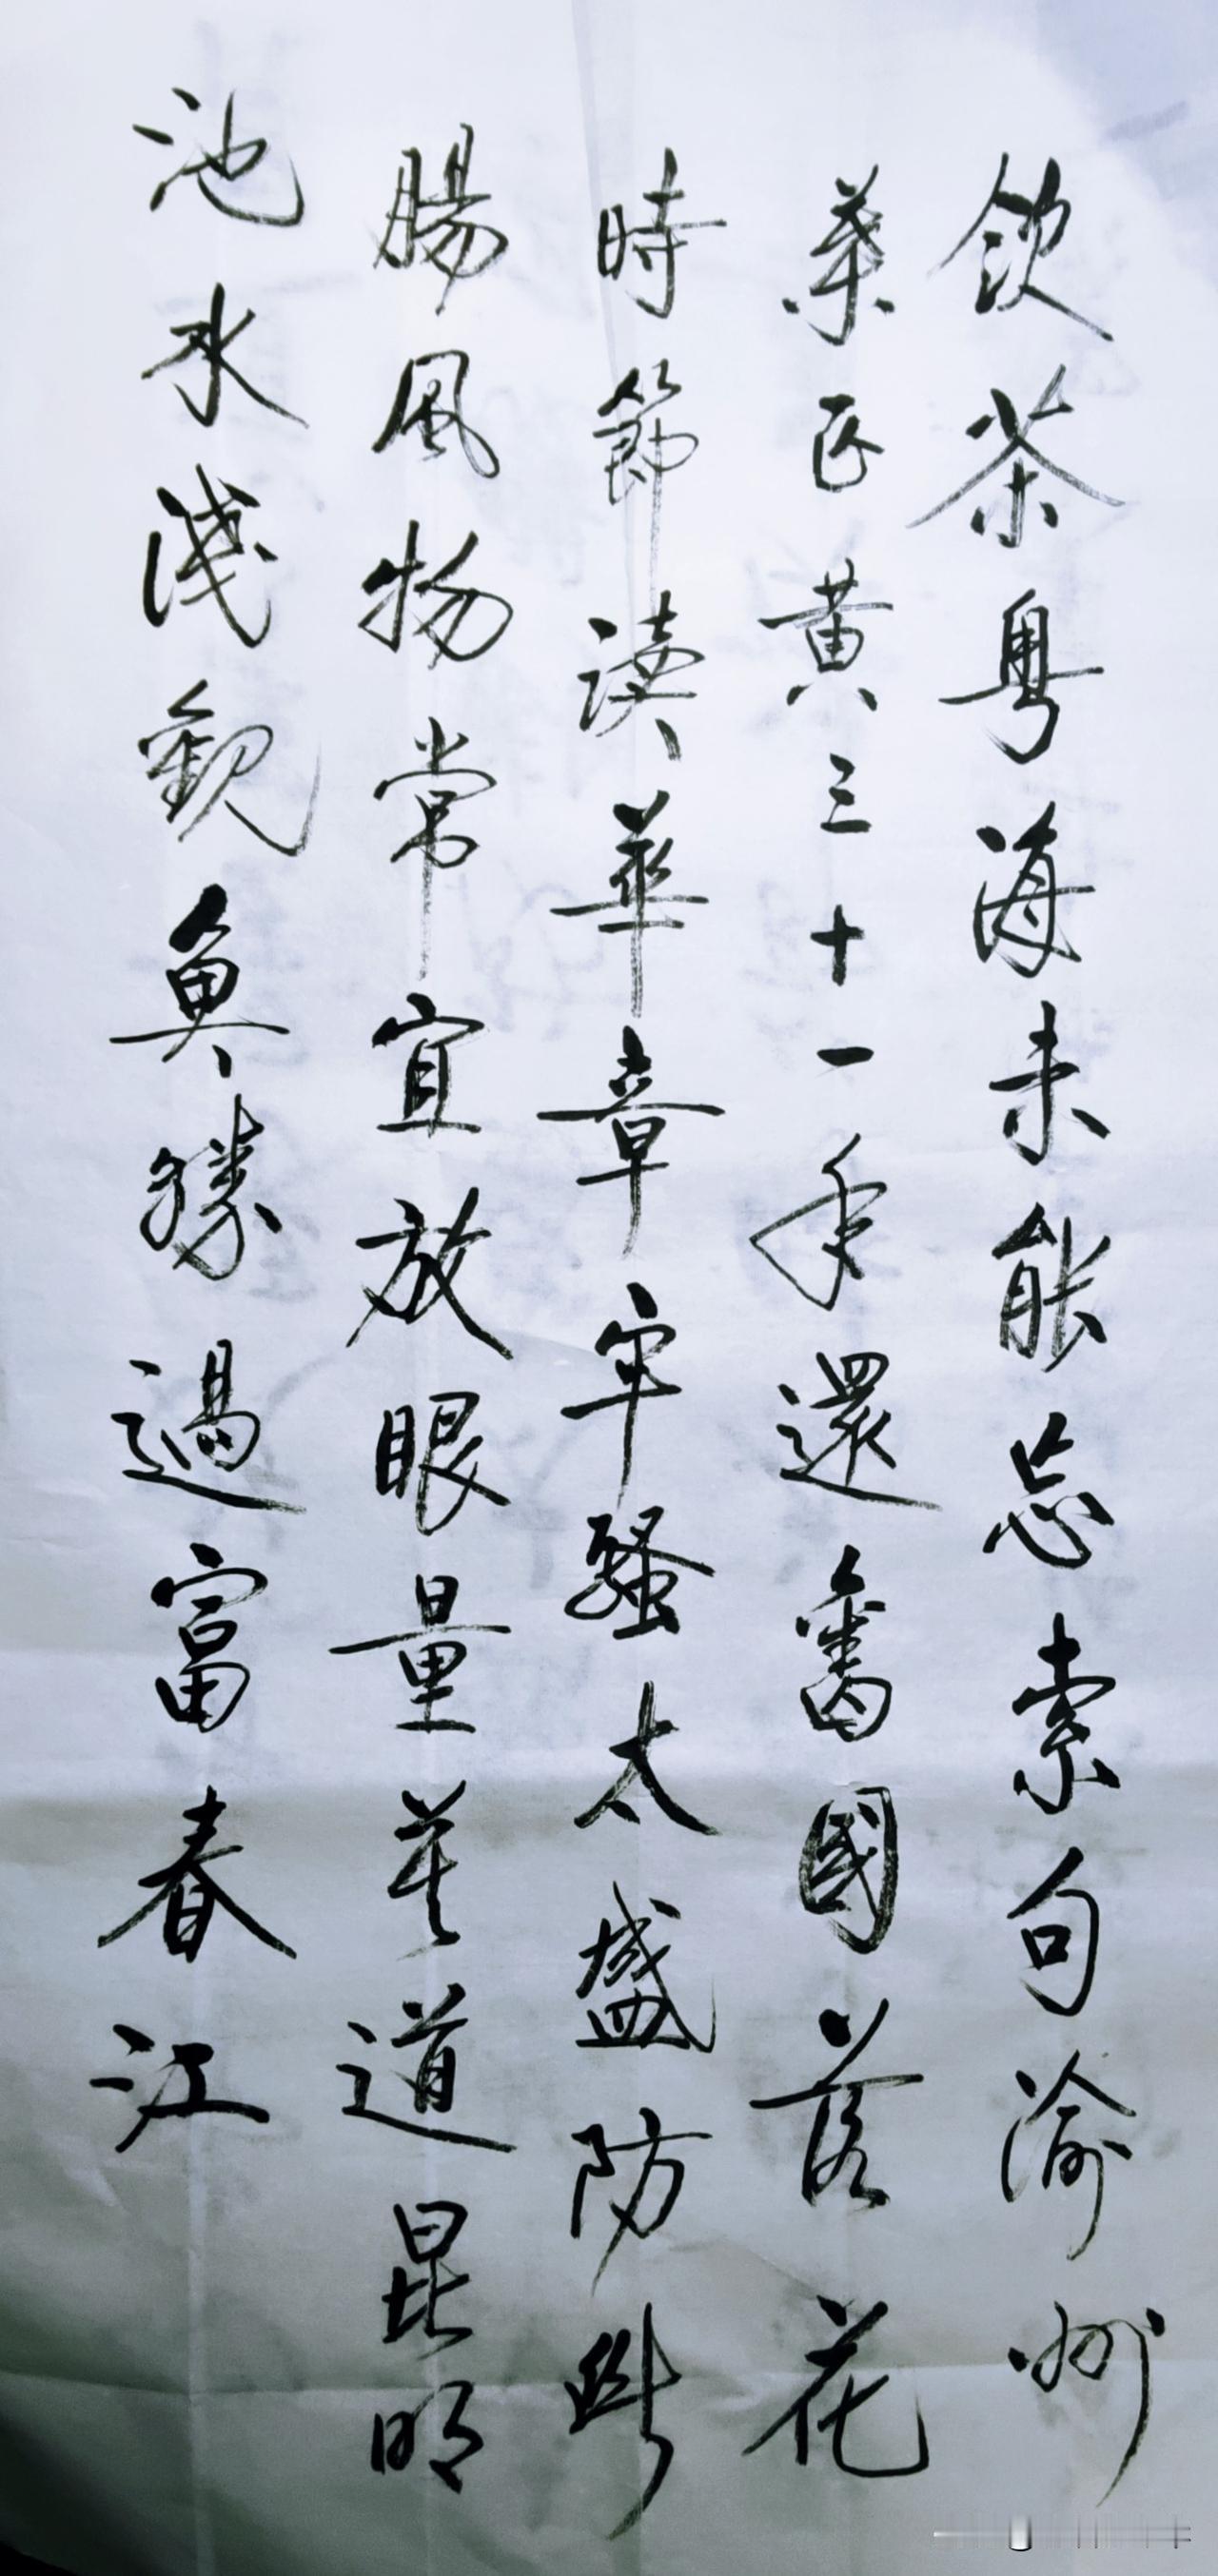 飲茶粵海未能忘索句渝州
葉正黃三十一年還舊國落花
時節读華章牢騷太盛防斷
腸風物常宜放眼量莫道昆明
池水淺觀魚勝過富春江